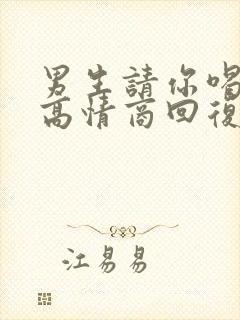 男生請你喝
高情商回復
江易易